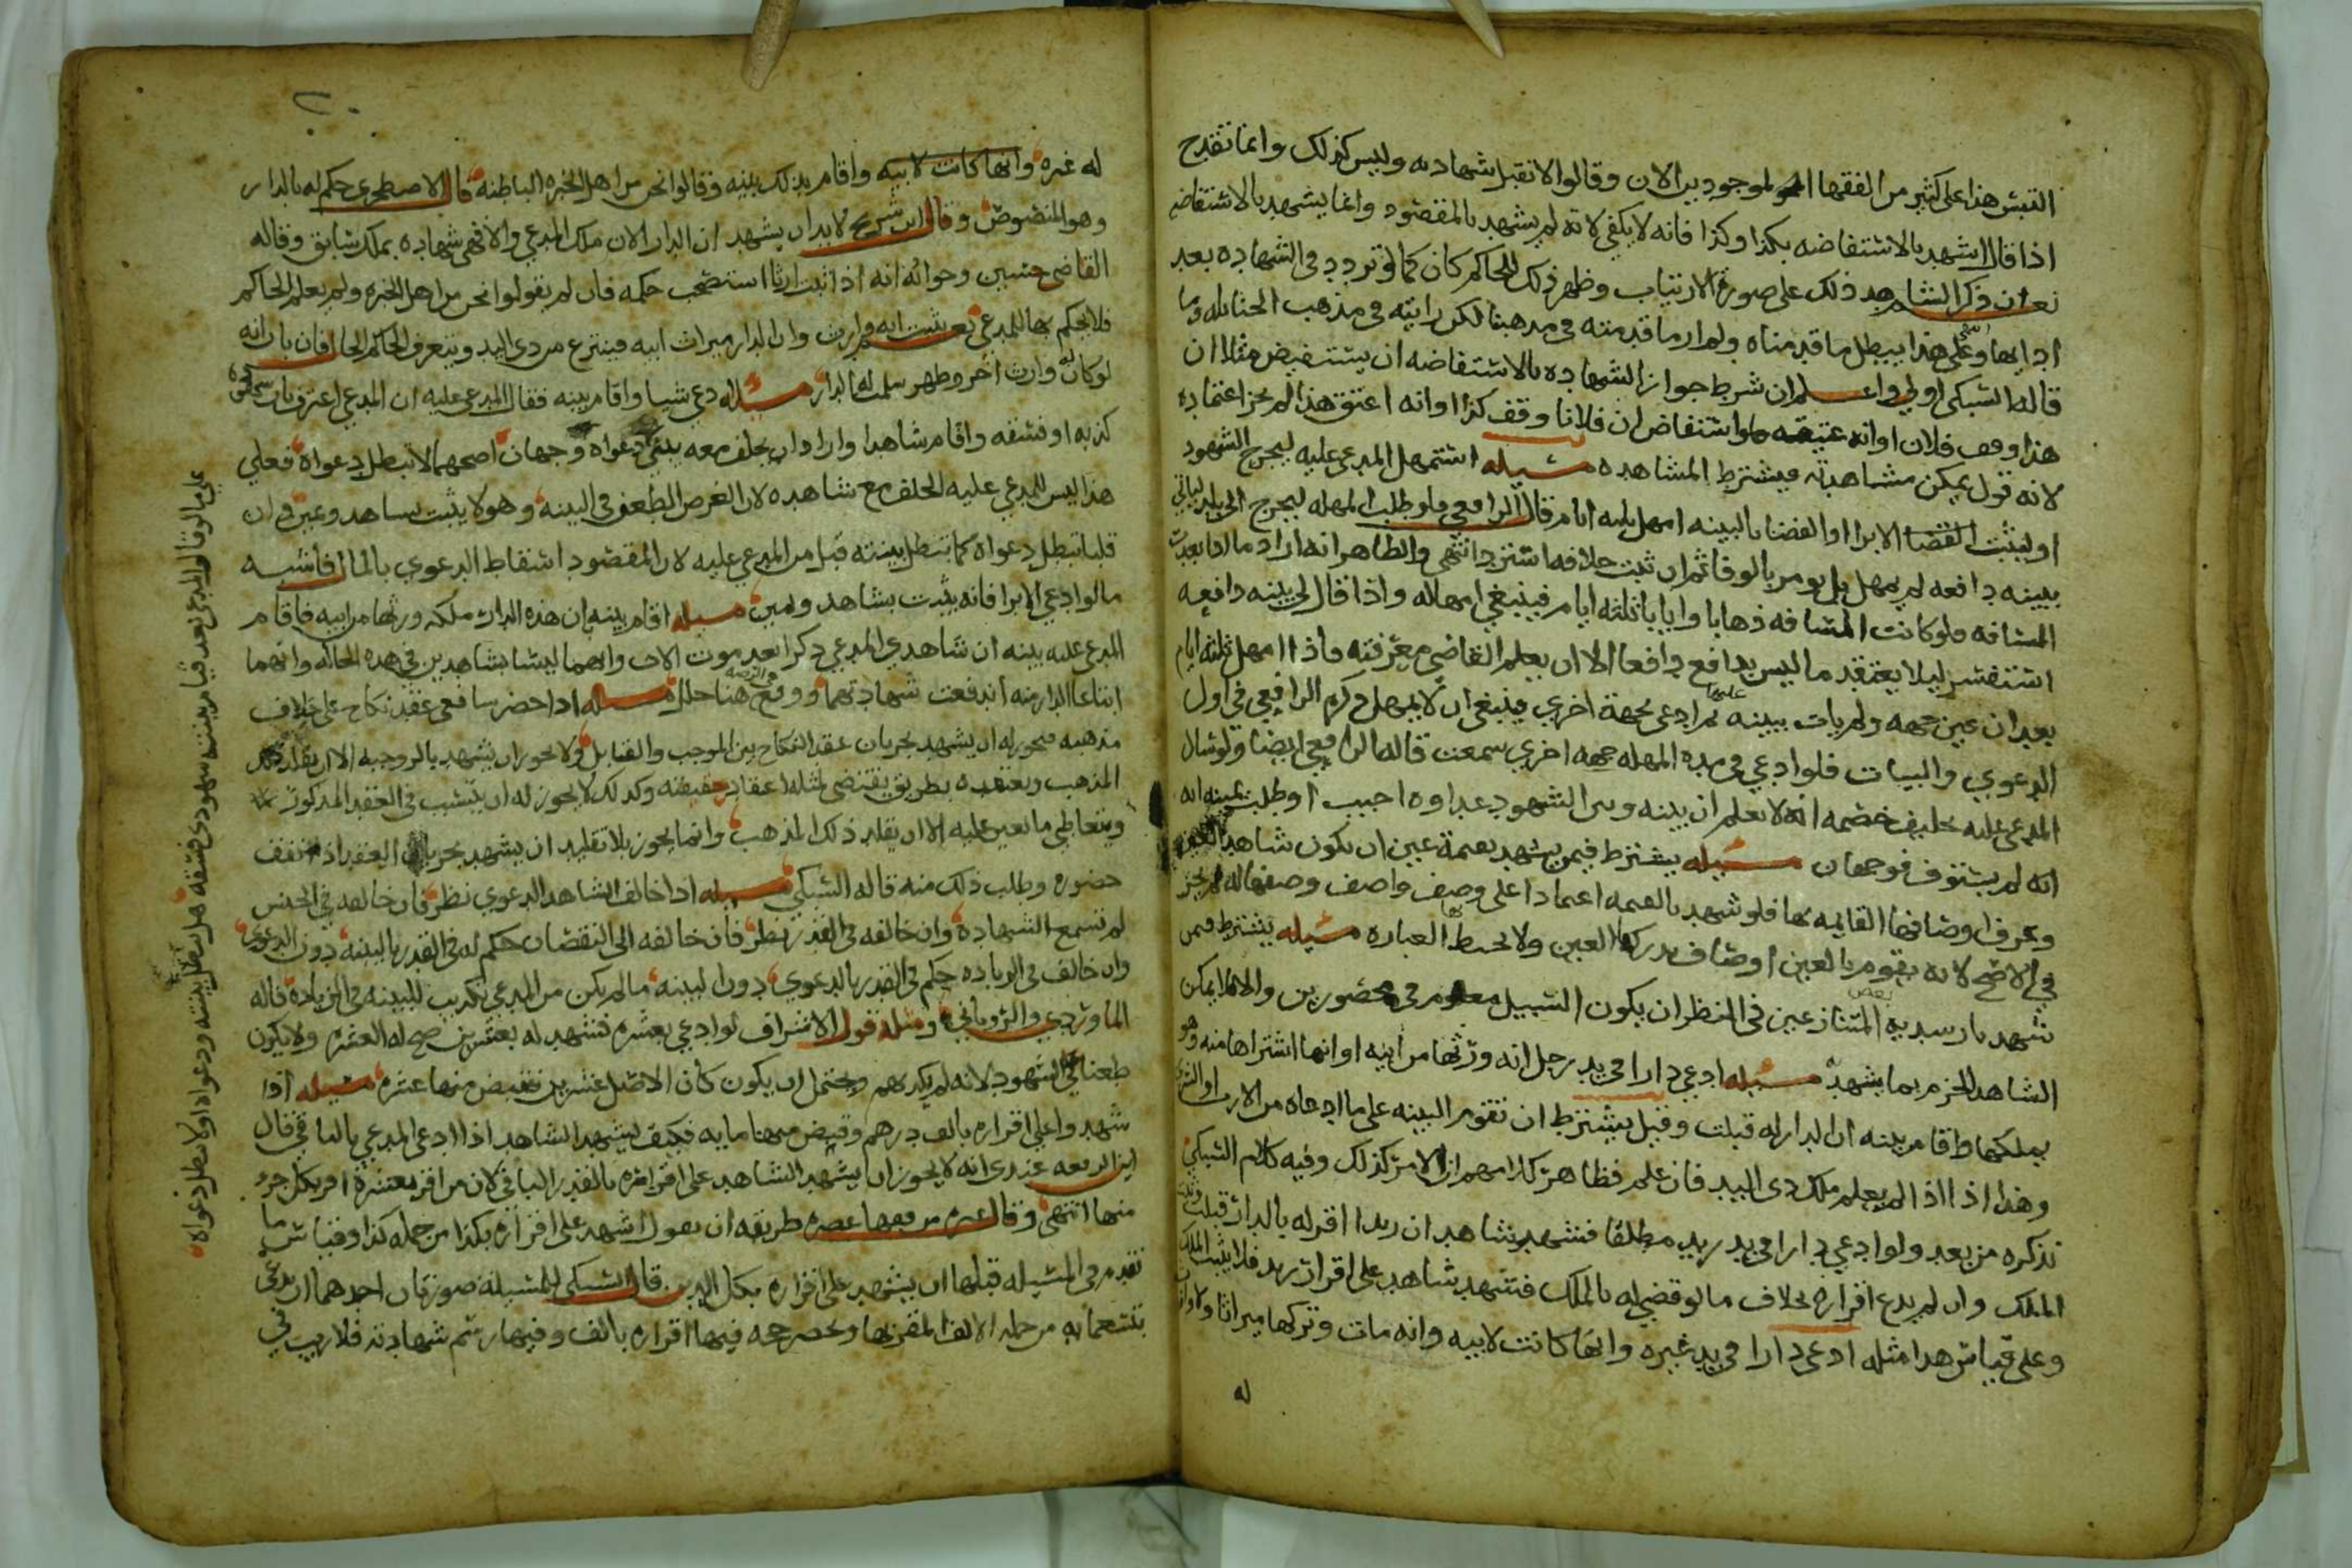 التبس هذا على كثير من الفقها الموجودين الان وقالوا لا تقبل شهادته وليس كذلك وانما تقدح
اذا قال اشهد بالاستفاضه بكذا وكذا فانه لا يكفي لانه لم يشهد بالمقصود وانما يشهد بالاستفاضه
نعم ان ذكر الشاهد ذلك على صورة الارتياب وظهر ذلك للحاكم كان كما لو تردد في الشهاده بعد
ادايها وعلى هذا يبطل ما قدمناه ولم ار ما قدمته في مذهبنا لكن رايته في مذهب الحنابله وما
قاله السبكي اولى واعلم ان شرط جواز الشهاده بالاستفاضه ان يستفيض مثلا ان
هذا وقف فلان او انه عتيقه ولو استفاض ان فلانا وقف كذا او انه اعتق هذا لم يجز اعتماده
لانه قول يمكن مشاهدته فيشترط المشاهده مسئله استمهل المدعى عليه ليخرج الشهود
او ليثبت القضا الابرا او القضا بالبينه امهل ثلثه ايام قال الرافعي ولو طلب المهله ليخرج الى بلد لياتي
ببينه دافعه لم يمهل بل يومر بالوفا ثم ان ثبت خلافه استرد انتهى والظاهر انه اراد ما اذا بعدت
المسافه ولو كانت المسافه ذهابا وايابا ثلثه ايام فينبغي امهاله واذا قال لي بينه دافعه
استفسر ليلا يعتقد ما ليس بدافع دافعا الا ان يعلم القاضي معرفته واذا امهل ثلثه ايام
بعد ان عين جهه ولم يات ببينه عليها ثم ادعى بجهة اخرى فينبغي ان لا يمهل ذكره الرافعي في اول
الدعوى والبينات فلو ادعى في مدة المهله جهه اخرى سمعت قاله الرافعي ايضا ولو سال
المدعى عليه تحليف خصمه انه لا يعلم ان بينه وبين الشهود عداوه اجيب او طلب يمينه انه
انه لم يستوف فوجهان مسئله يشترط فيمن يشهد بقيمة عين ان يكون شاهد العين
وعرف اوصافها القايمه بها فلو شهد بالقيمه اعتمادا على وصف واصف وصفها له لم يجز
في الاصح لانه يقوم بالعين اوصاف تدركها العين ولا تحيط بها العباره مسئله يشترط فيمن
شهد بان بيد بعض المتنازعين في النظر ان يكون السبيل معلوم في محضورين والا لما يمكن
الشاهد الجزم بما يشهد مسئله ادعى دارا في يد رجل انه ورثها من ابيه او انها اشتراها منه وهو
يملكها واقام بينه ان الدار له قبلت وقيل يشترط ان تقوم البينه على ما ادعاه من الارث او الشرى
وهذا اذا لم يعلم ملك ذى اليد فان علم فظاهر كلامهم ان الامر كذلك وفيه كلام السبكي
نذكره من بعد ولو ادعى دارا في يد زيد مطلقا فشهد شاهد ان زيدا اقر له بالدار قبلت وثبت
الملك وان لم يدع اقراره بخلاف ما لو قضي له بالملك فشهد شاهد على اقرار زيد فلا يثبت الملك
وعلى قياس هذا مثله ادعى دارا في يد غيره وانها كانت لابيه وانه مات وتركها ميراثا ولا وارث
له
٢٠
له غيره وانها كانت لابيه واقام بذلك بينه وقالوا نحن من اهل الخبره الباطنه قال الاصطخري حكم له بالدار
وهو المنصوص وقال ابن سريج لا بد ان يشهد ان الدار الان ملك المدعي والا فهي شهاده بملك سابق وقاله
القاضي حسين وجوابه انه اذا ثبت ارثا استصحب حكمه فان لم يقولوا نحن من اهل الخبره ولم يعلم الحاكم
فلا يحكم بها للمدعي نعم يثبت انه وارث وان الدار ميراث ابيه فينتزع من ذى اليد ويتعرف الحاكم الحال فان بان انه
لو كان له وارث اخر وظهر سلمت له الدار مسئله ادعى شيا واقام بينه فقال المدعى عليه ان المدعي اعترف بان
كذبه او فسقه واقام شاهدا واراد ان يحلف معه يبقى دعواه وجهان اصحهما لا تبطل دعواه فعلى
هذا ليس للمدعى عليه الحلف مع شاهده لان الغرض الطعن في البينه وهو لا يثبت بشاهد ويمين وان
قلنا تبطل دعواه كما تبطل بينته قبل من المدعى عليه لان المقصود اسقاط الدعوى بالمال فاشبه
ما لو ادعى الابرا فانه يثبت بشاهد ويمين مسئله اقام بينه ان هذه الدار ملكه ورثها من ابيه فاقام
المدعى عليه بينه ان شاهدي المدعي ذكرا بعد موت الاب وانهما ليسا بشاهدين في هذه الحاله وانهما
ابتاعا الدار منه اندفعت شهادتهما ووقع في الروضه هنا خلل مسئله اذا حضر شافعي عقد نكاح على خلاف
مذهبه فيجوز له ان يشهد بجريان عقد النكاح بين الموجب والقابل ولا يجوز ان يشهد بالزوجيه الا ان يقلد
المذهب ويعتقده بطريق يقتضي لمثله اعتقاد حقيقته وكذلك لا يجوز له ان يتسبب في العقد المذكور
ويتعاطى ما يعين عليه الا ان يقلد ذلك المذهب وانما يجوز بلا تقليد ان يشهد بجريان العقد اذا اتفق
حضوره وطلب ذلك منه قاله السبكي مسئله اذا خالف الشاهد الدعوى نظر فان خالفه في الجنس
لم تسمع الشهادة وان خالفه في القدر نظر فان خالفه الى النقصان حكم له في القدر بالبينه دون الدعوى
وان خالف في الزياده حكم في القدر بالدعوى دون البينه ما لم يكن من المدعي تكذيب للبينه في الزياده قاله
الماوردي والروياني ومثله قول الاشراف لو ادعى بعشره فشهد له بعشرين صح له العشره ولا يكون
طعنا في الشهود لانه لم يكذبهم ويحتمل ان يكون كان الاصل عشرين فقبض منها عشره مسئله اذا
شهدوا على اقراره بالف درهم وقبض منها مايه فكيف يشهد الشاهد اذا ادعى المدعي بالباقي قال
ابن الرفعه عندي انه لا يجوز ان يشهد الشاهد على اقراره بالقدر الباقي لان من اقر بعشرة اقر بكل جزء
منها انتهى وقال غيره من فقها عصره طريقه ان يقول اشهد على اقراره بكذا من جمله كذا وقياس ما
تقدم في المسئله قبلها ان يشهد على اقراره بكل الدين قال السبكي للمسئلة صورتان احدهما ان يدعي
بتسعمايه من جمله الالف المقر بها وتحضر حجه فيها اقراره بالف وفيها رسم شهادته فلا ريب في
على ما لو قال المدعي بعد قيام بينته شهودي فسقه هل تبطل بينته ودعواه او لا تبطل دعواه